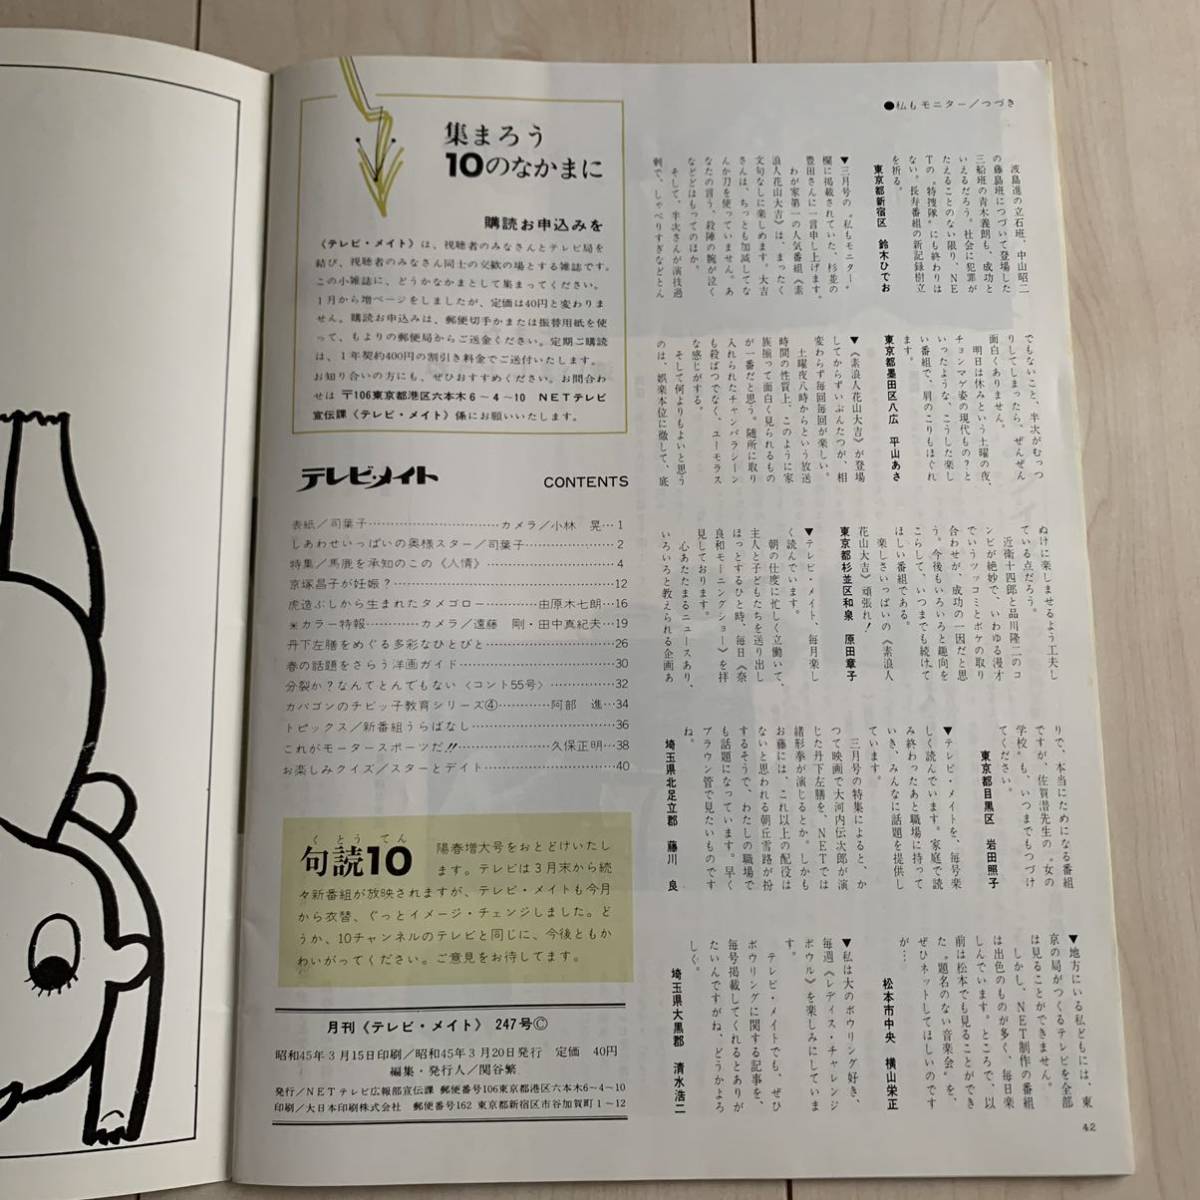 集まろう
10のなかまに
購読お申込みを
《テレビ・メイト》は、視聴者のみなさんとテレビ局を
結び、視聴者のみなさん同士の交歓の場とする雑誌です。
この小雑誌に、どうかなかまとして集まってください。
1月から増ページをしましたが、定価は40円と変わりま
せん。購読お申込みは、郵便切手かまたは振替用紙を使
って、もよりの郵便局からご送金ください。定期ご購読
は、1年契約400円の割引き料金でご送付いたします。
お知り合いの方にも、ぜひおすすめください。お問合わ
せは 〒106東京都港区六本木6〜4〜10 NETテレビ
宣伝課《テレビ・メイト》係にお願いいたします。
テレビ・メイト CONTENTS
表紙／司葉子………カメラ／小林 晃…1
しあわせいっぱいの奥様スター／司葉子………2
特集／馬鹿を承知のこの《人情》………4
京塚昌子が妊娠？………12
虎造ぶしから生まれたタメゴロー………由原木七朗…16
※カラー特報………カメラ／遠藤 剛・田中真紀夫…19
丹下左膳をめぐる多彩なひとびと………26
春の話題をさらう洋画ガイド………30
分裂か？なんてとんでもない〈コント55号〉………32
カバゴンのチビッ子教育シリーズ④………阿部 進…34
トピックス／新番組うらばなし………36
これがモータースポーツだ!!………久保正明…38
お楽しみクイズ／スターとデイト………40
くとうてん
句読10
陽春増大号をおとどけいたし
ます。テレビは3月末から続
々新番組が放映されますが、テレビ・メイトも今月
から衣替、ぐっとイメージ・チェンジしました。ど
うか、10チャンネルのテレビと同じに、今後ともか
わいがってください。ご意見をお待してます。
月刊《テレビ・メイト》 247号Ⓒ
昭和45年3月15日印刷／昭和45年3月20日発行 定価 40円
編集・発行人／関谷繁
発行／NETテレビ広報部宣伝課 郵便番号106東京都港区六本木6〜4〜10
印刷／大日本印刷株式会社 郵便番号162 東京都新宿区市谷加賀町1〜12
●私もモニター／つづき
波島進の立石班、中山昭二
の藤島班につづいて登場した
三船班の青木義朗も、成功と
いえるだろう。社会に犯罪が
たえることのない限り、NE
Tの〝特捜隊〟にも終わりは
ない。長寿番組の新記録樹立
を祈る。
東京都新宿区 鈴木ひでお
▼三月号の〝私もモニター〟
欄に掲載されていた、杉並の
豊田さんに一言申し上げます。
わが家第一の人気番組《素
浪人花山大吉》は、まったく
文句なしに楽しめます。大吉
さんは、ちっとも加減してな
んか刀を使っていません。あ
なたの言う、殺陣の腕が泣く
などとはもってのほか。
そして、半次さんが演技過
剰で、しゃべりすぎなどとん
でもないこと、半次がむっつ
りしてしまったら、ぜんぜん
面白くありません。
明日は休みという土曜の夜、
チョンマゲ姿の現代もの？と
いったような、こうした楽し
い番組で、肩のこりもほぐれ
ます。
東京都墨田区八広 平山あさ
▼《素浪人花山大吉》が登場
してからずいぶんたつが、相
変わらず毎回毎回が楽しい。
土曜夜八時からという放送
時間の性質上、このように家
族揃って面白く見られるもの
が一番だと思う。随所に取り
入れられたチャンバラシーン
も殺ばつでなく、ユーモラス
な感じがする。
そして何よりもよいと思う
のは、娯楽本位に徹して、底
ぬけに楽しませるよう工夫し
ている点だろう。
近衛十四郎と品川隆二のコ
ンビが絶妙で、いわゆる漫才
でいうツッコミとボケの取り
合わせが、成功の一因だと思
う。今後もいろいろと趣向を
こらして、いつまでも続けて
ほしい番組である。
楽しさいっぱいの《素浪人
花山大吉》頑張れ！
東京都杉並区和泉 原田章子
▼テレビ・メイト、毎月楽し
く読んでいます。
朝の仕度に忙しく立働いて、
主人と子どもたちを送り出し
ほっとするひと時、毎日《奈
良和モーニングショー》を拝
見しております。
心あたたまるニュースあり、
いろいろと教えられる企画あ
りで、本当にためになる番組
ですが、佐賀潜先生の〝女の
学校〟も、いつまでもつづけ
てください。
東京都目黒区 岩田照子
▼テレビ・メイトを、毎号楽
しく読んでいます。家庭で読
み終わったあと職場に持って
いき、みんなに話題を提供し
ています。
三月号の特集によると、か
つて映画で大河内伝次郎が演
じた丹下左膳を、NETでは
緒形拳が演じるとか。しかも
お藤には、これ以上の配役は
ないと思われる朝丘雪路が扮
するそうで、わたしの職場で
も話題になっています。早く
ブラウン管で見たいものです
ね。
埼玉県北足立郡 藤川 良
▼地方にいる私どもには、東
京の局がつくるテレビを全部
は見ることができません。
しかし、NET制作の番組
は出色のものが多く、毎日楽
しんでいます。ところで、以
前は松本でも見ることができ
た〝題名のない音楽会〟を、
ぜひネットしてほしいのです
が…
松本市中央 横山栄正
▼私は大のボウリング好き、
毎週《レディス・チャレンジ
ボウル》を楽しみにしていま
す。
テレビ・メイトでも、ぜひ
ボウリングに関する記事を、
毎号掲載してくれるとありが
たいんですがね、どうかよろ
しく。
埼玉県大黒郡 清水浩二
42